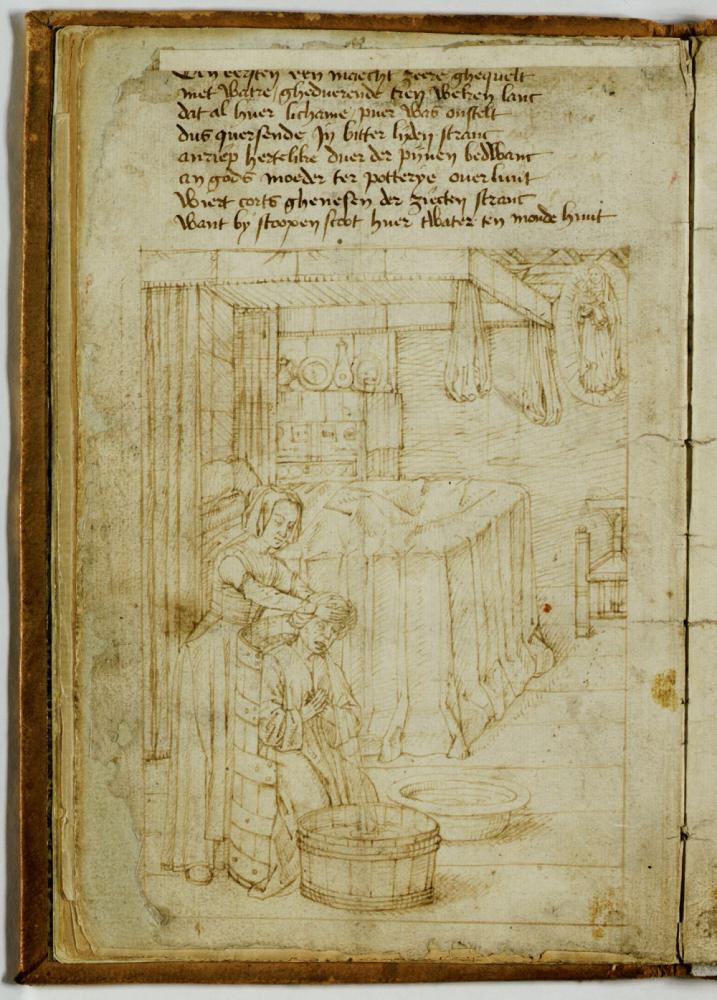 Den eersten een maecht zeere ghequelt
met watre ghedueren de tien weken lanc
dat al huer lichame puer was onstelt
dus quersende In bitter lijden stranc
anriep hertelike duer der pijnen bedwanc
an gods moeder ter potterye ouerluut
wiert corts ghenesen der ziecten stranc
want by stoopen scoot huer twater ten monde huut